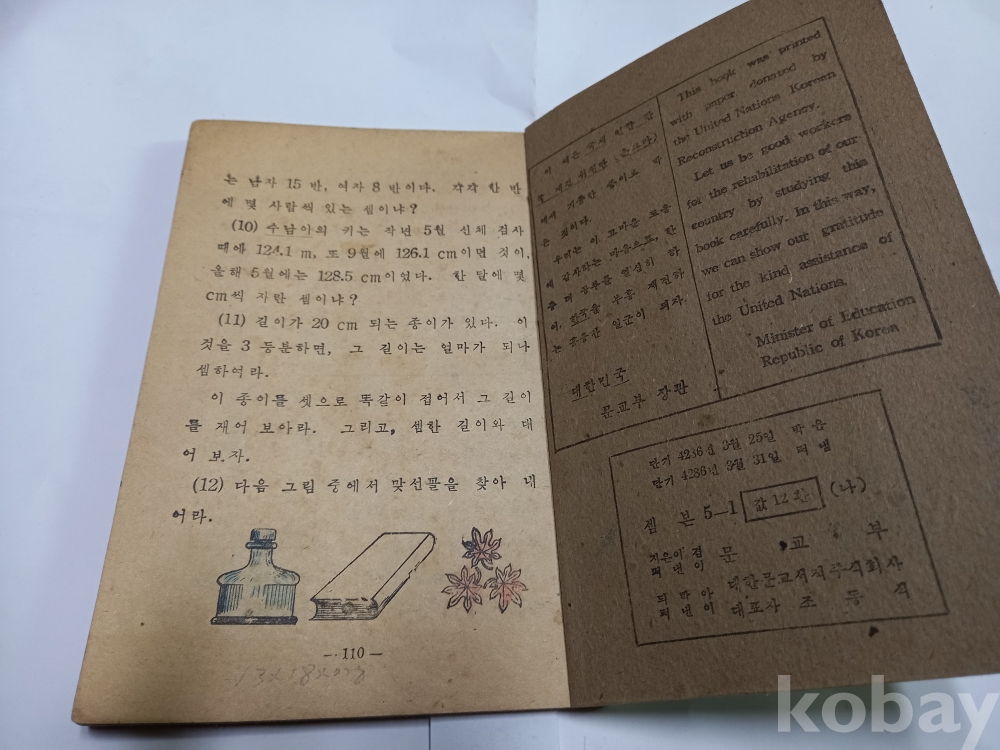 는 남자 15 반, 여자 8 반이다. 각각 한 반
에 몇 사람씩 있는 셈이냐?
(10) 수남이의 키는 작년 5월 신체 검사
때에 124.1 m, 또 9월에 126.1 cm이던 것이,
올해 5월에는 128.5 cm이었다. 한 달에 몇
cm씩 자란 셈이냐?
(11) 길이가 20 cm 되는 종이가 있다. 이
것을 3 등분하면, 그 길이는 얼마가 되나
셈하여라.
이 종이를 셋으로 똑같이 접어서 그 길이
를 재어 보아라. 그리고, 셈한 길이와 대
어 보자.
(12) 다음 그림 중에서 맞선꼴을 찾아 내
어라.
— 110 —
이 책은 국제 연합 한
국 재건 위원단 (운끄라)
에서 기증한 종이로 박
은 것이다.
우리는 이 고마운 도움
에 감사하는 마음으로, 한
층 더 공부를 열심히 하
여, 한국을 부흥 재건하
는 훌륭한 일군이 되자.
대한민국
문교부 장관
This book was printed
with paper donated by
the United Nations Korean
Reconstruction Agency.
Let us be good workers
for the rehabilitation of our
country by studying this
book carefully. In this way,
we can show our gratitude
for the kind assistance of
the United Nations.
Minister of Education
Republic of Korea
단기 4286년 3월 25일 박음
단기 4286년 3월 31일 펴냄
셈 본 5—1 값 12 환 (나)
지은이 겸
펴낸이 문 교 부
박아
펴낸이 대한문교서적주식회사
대표자 조 등 식
kobay